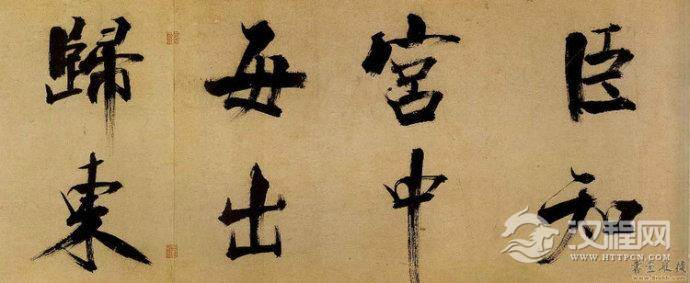 臣知
宮中
每出
歸東
汉程网
WWW.HTTPCN.COM